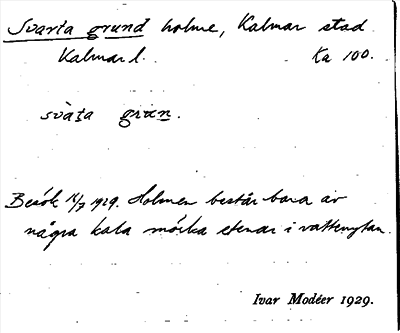 Svarta grund holme, Kalmar stad
Kalmar l. Ka 100.
svàta grun.
Besök 18/7 1929. Holmen består bara av
några kala mörka stenar i vattenytan.
Ivar Modéer 1929.